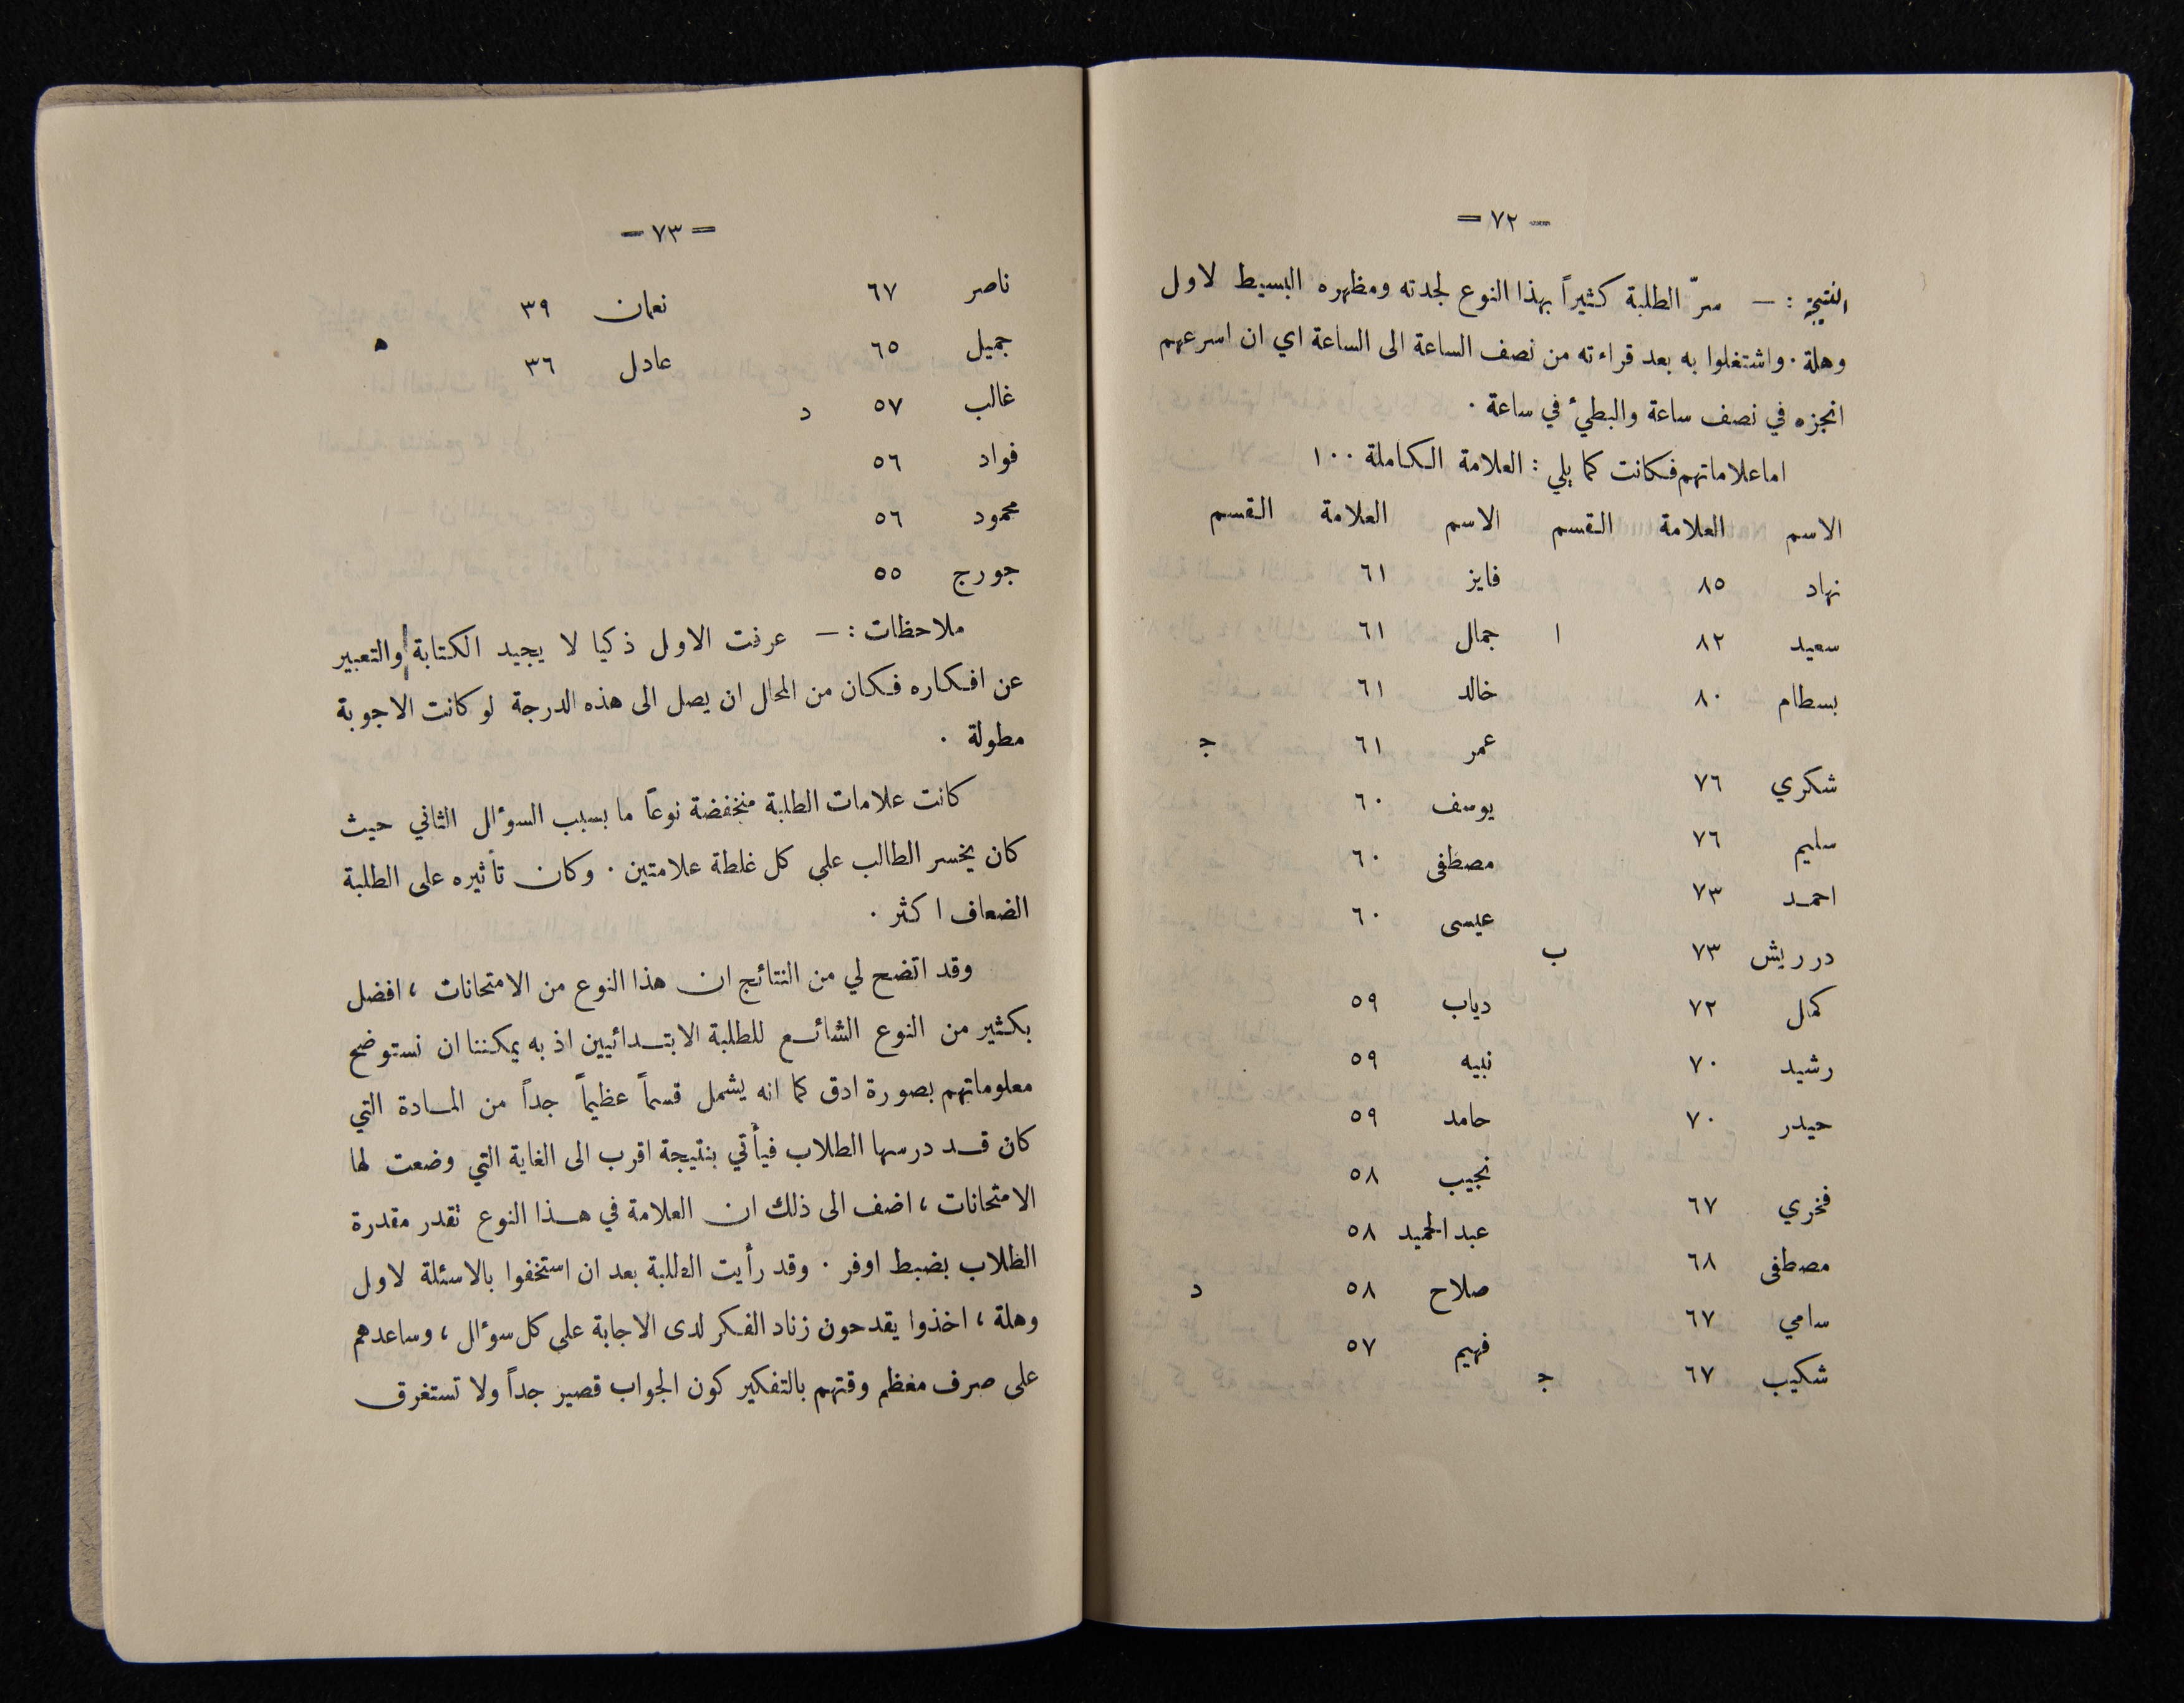 — ٧٢ =
النتيجة : — سرّ الطلبة كثيراً بهذا النوع لجدته ومظهره البسيط لاول
وهلة . واشتغلوا به بعد قراءته من نصف الساعة الى الساعة اي ان اسرعهم
انجزه في نصف ساعة والبطيء في ساعة .
اما علاماتهم فكانت كما يلي : العلامة الكاملة ١٠٠
الاسم العلامة القسم الاسم العلامة القسم
نهاد ٨٥ فايز ٦١
سعيد ٨٢ ا جمال ٦١
بسطام ٨٠ خالد ٦١
عمر ٦١ ج
شكري ٧٦ يوسف ٦٠
سليم ٧٦ مصطفى ٦٠
احمد ٧٣ عيسى ٦٠
درريش ٧٣ ب
كمال ٧٢ دياب ٥٩
رشيد ٧٠ نبيه ٥٩
حيدر ٧٠ حامد ٥٩
نجيب ٥٨
فخري ٦٧ عبد الحميد ٥٨
مصطفى ٦٨ صلاح ٥٨ د
سامي ٦٧ فهيم ٥٧
شكيب ٦٧ ج
= ٧٣ —
ناصر ٦٧ نعمان ٣٩
جميل ٦٥ عادل ٣٦ ه
غالب ٥٧ د
فواد ٥٦
محمود ٥٦
جورج ٥٥
ملاحظات : — عرفت الاول ذكيا لا يجيد الكتابة والتعبير
عن افكاره فكان من المحال ان يصل الى هذه الدرجة لو كانت الاجوبة
مطولة .
كانت علامات الطلبة منخفضة نوعاً ما بسبب السوءال الثاني حيث
كان يخسر الطالب علي كل غلطة علامتين . وكان تأثيره على الطلبة
الضعاف اكثر .
وقد اتضح لي من النتائج ان هذا النوع من الامتحانات ، افضل
بكثير من النوع الشائع للطلبة الابتدائيين اذ به يمكننا ان نستوضح
معلوماتهم بصورة ادق كما انه يشمل قسماً عظيماً جداً من المادة التي
كان قد درسها الطلاب فيأتي بنتيجة اقرب الى الغاية التي وضعت لها
الامتحانات ، اضف الى ذلك ان العلامة في هذا النوع تقدر مقدرة
الطلاب بضبط اوفر . وقد رأيت الطلبة بعد ان استخفوا بالاسئلة لاول
وهلة ، اخذوا يقدحون زناد الفكر لدى الاجابة على كل سوءال ، وساعدهم
على صرف معظم وقتهم بالتفكير كون الجواب قصير جداً ولا تستغرق